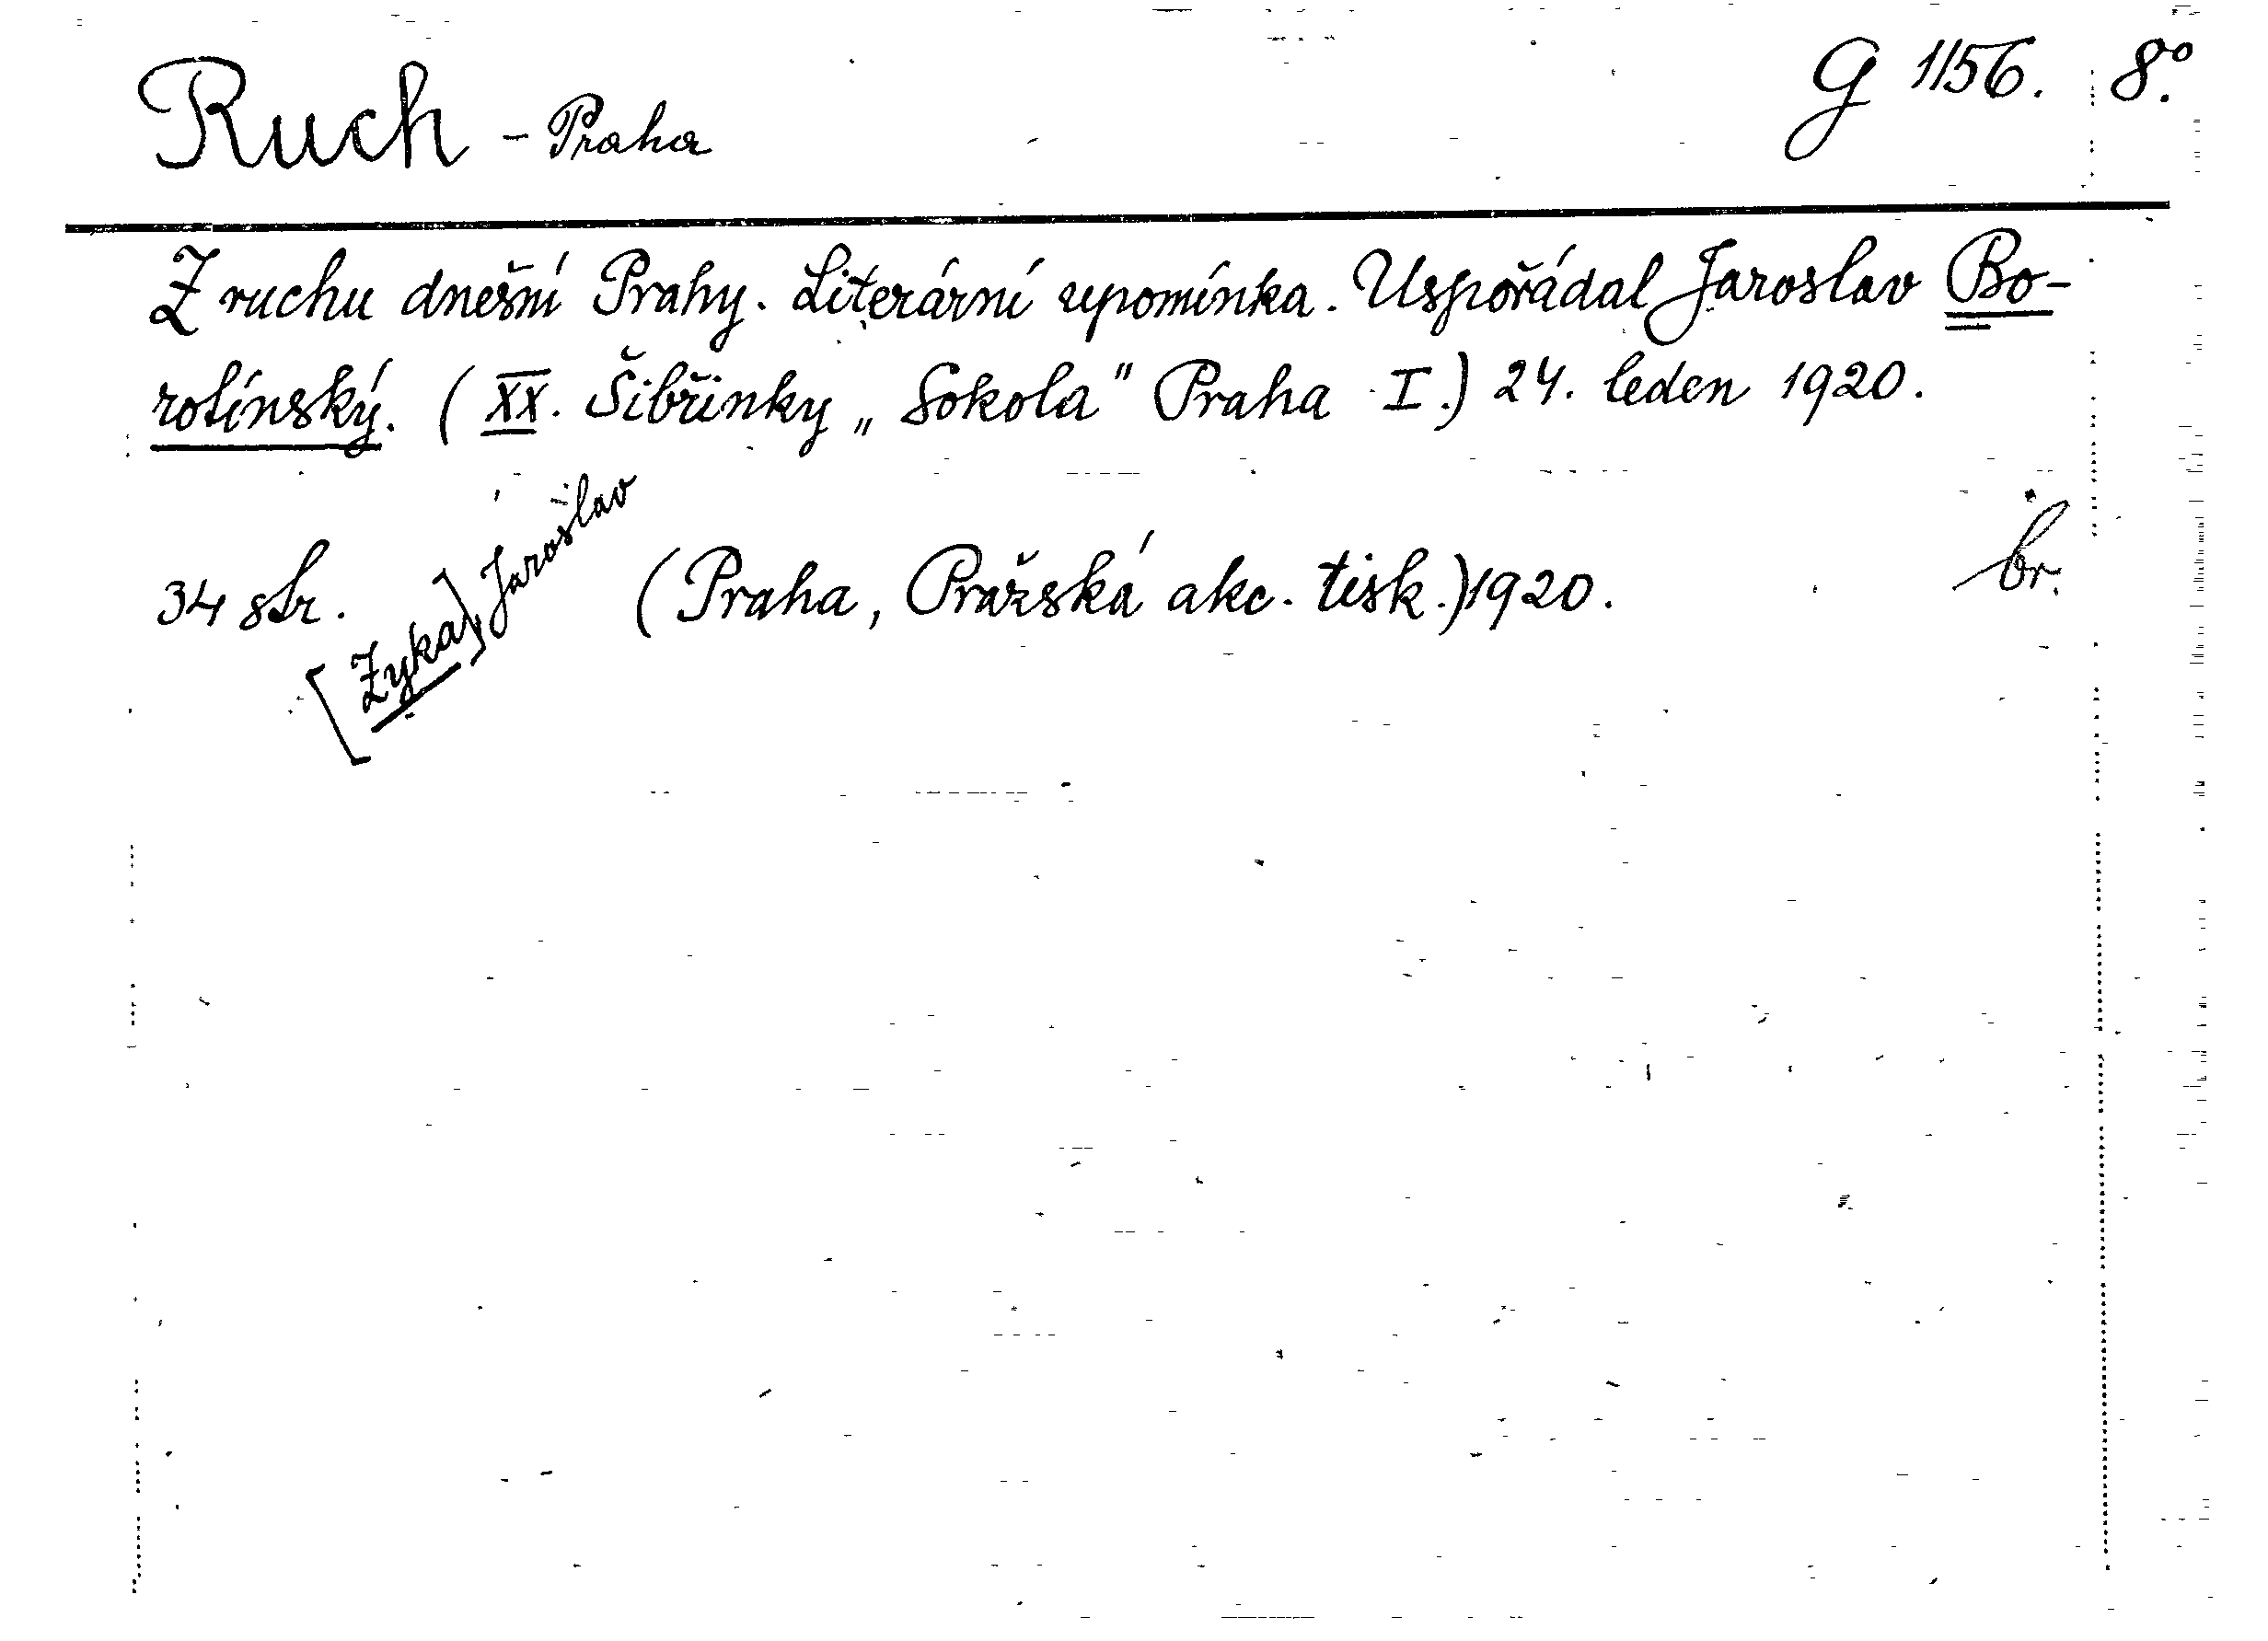 Ruch - Praha
G 1156. 8°.
Z ruchu dnešní Prahy. Literární upomínka. Uspořádal Jaroslav Bo-
rotínský. (XX. Šibřinky „Sokola" Praha I.) 24. leden 1920.
34 str. (Praha, Pražská akc. tisk.) 1920. br.
[Zyka], Jaroslav